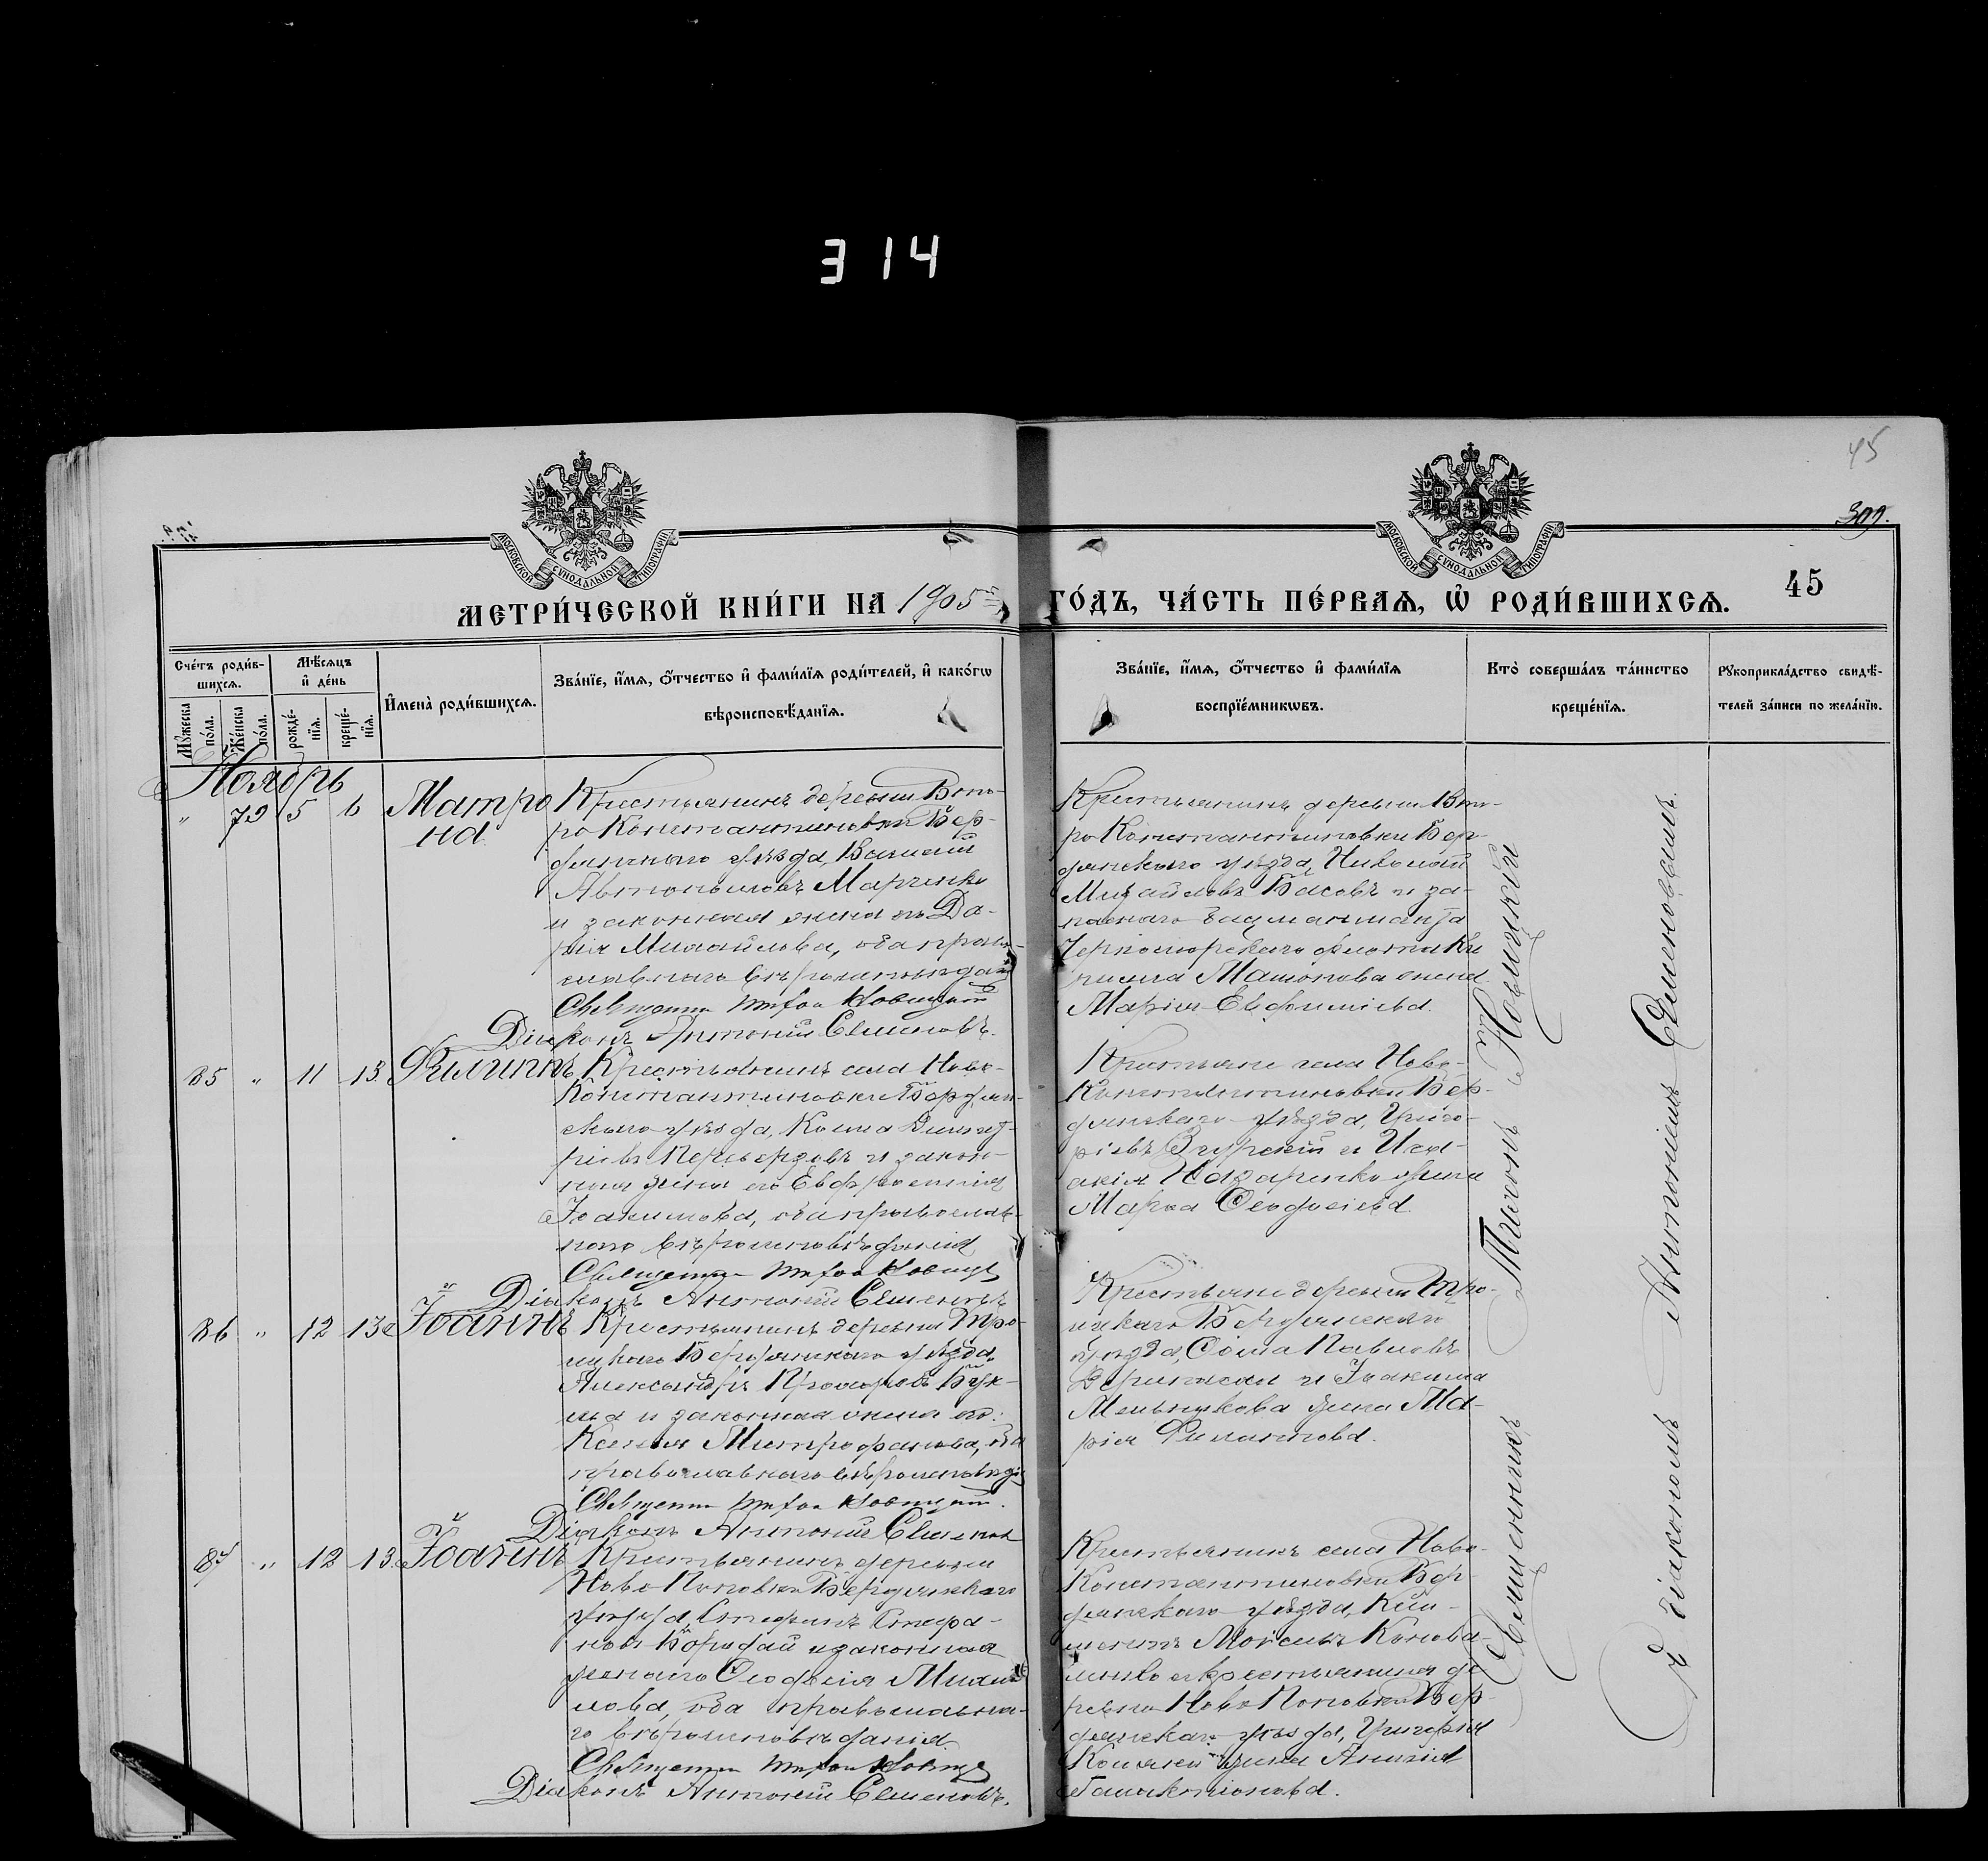 314
45
309.
МОСКОВСКОЙ СѴНОДАЛЬНОЙ ТИПОГРАФІИ
МОСКОВСКОЙ СѴНОДАЛЬНОЙ ТИПОГРАФІИ
МЕТРИ́ЧЕСКОЙ КНИ́ГИ НА 1905 ГО́ДЪ, ЧА́СТЬ ПЕ́РВАѦ, Ѡ҆ РОДИ́ВШИХСѦ.
45
Сче́тъ роди́в-
шихсѧ.
Мꙋ́жеска по́ла.
Же́нска по́ла.
Мѣ́сѧцъ
и҆ де́нь
рожде́-
нїѧ.
креще́-
нїѧ.
И҆мена̀ роди́вшихсѧ.
Зва́нїе, и҆́мѧ, ѻ҆́тчество и҆ фами́лїѧ роди́телей, и҆ како́гѡ
вѣроисповѣ́данїѧ.
Зва́нїе, и҆́мѧ, ѻ҆́тчество и҆ фами́лїѧ
воспрїе́мникѡвъ.
Кто̀ соверша́лъ та́инство
креще́нїѧ.
Рꙋкоприкла́дство свидѣ́-
телей за́писи по жела́нїю.
Ноябрь
" 79 5 6 Матро
на
Крестьянинъ деревни Вто-
ро Константиновки Бер-
дянскаго уѣзда, Василій
Автономовъ Марченко
и законная жена его Да-
рія Михайлова, оба право-
славнаго вѣроисповѣданія
Священн Тихон Новицкій
Діаконъ Антоній Семеновъ.
Крестьянинъ деревни Вто-
ро Константиновки Бер-
дянскаго уѣзда, Николай
Михайловъ Басовъ и за-
паснаго
Черноморскаго флота Ки
рилла жена
Марія Евфиміева.
85 " 11 13 Филиппъ
Крестьянинъ села Ново-
Константиновки Бердян-
скаго уѣзда, Косма Димит-
ріевъ Перевердовъ и закон-
ная жена его Евфросинія
Іоакимова, оба православ-
наго вѣроисповѣданія
Священн Тихон Новицк
Діаконъ Антоній Семеновъ
Крестьяне села Ново-
Константиновки Бер-
дянскаго уѣзда, Григо-
рій и Иса-
акія Назаренко жена
Марѳа Ѳеодосіева.
86 " 12 13 Іоаннъ
Крестьянинъ деревни Тро-
ицкаго Бердянскаго уѣзда,
Александръ
и законная жена его
Ксенія Митрофанова, оба
православнаго вѣроисповѣд
Священн Тихон Новицкій.
Діаконъ Антоній Семенов
Крестьяне деревни Тро-
ицкаго Бердянскаго
уѣзда, Ѳома Павловъ
и Іоакима
Мельникова жена Ма-
рія Филиппова.
87 " 12 13 Іоаннъ
Крестьянинъ деревни
Ново Поповки Бердянскаго
уѣзда, Стефанъ Стефа-
новъ Бородай и законная
жена его Ѳеодосія Михай
лова, оба православна-
го вѣроисповѣданія.
Священн Тихон Новицк
Діаконъ Антоній Семеновъ.
Крестьянинъ села Ново-
Константиновки Бер-
дянскаго уѣзда, Кли-
ментъ Моисеевъ Конова-
ленко и крестьянина де
ревни Ново Поповки Бер-
дянскаго уѣзда, Григорія
жена Анисія
Священникъ Тихонъ Новицкій
съ діакономъ Антоніемъ Семеновымъ.